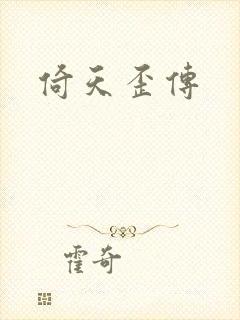 倚天歪傳
霍奇